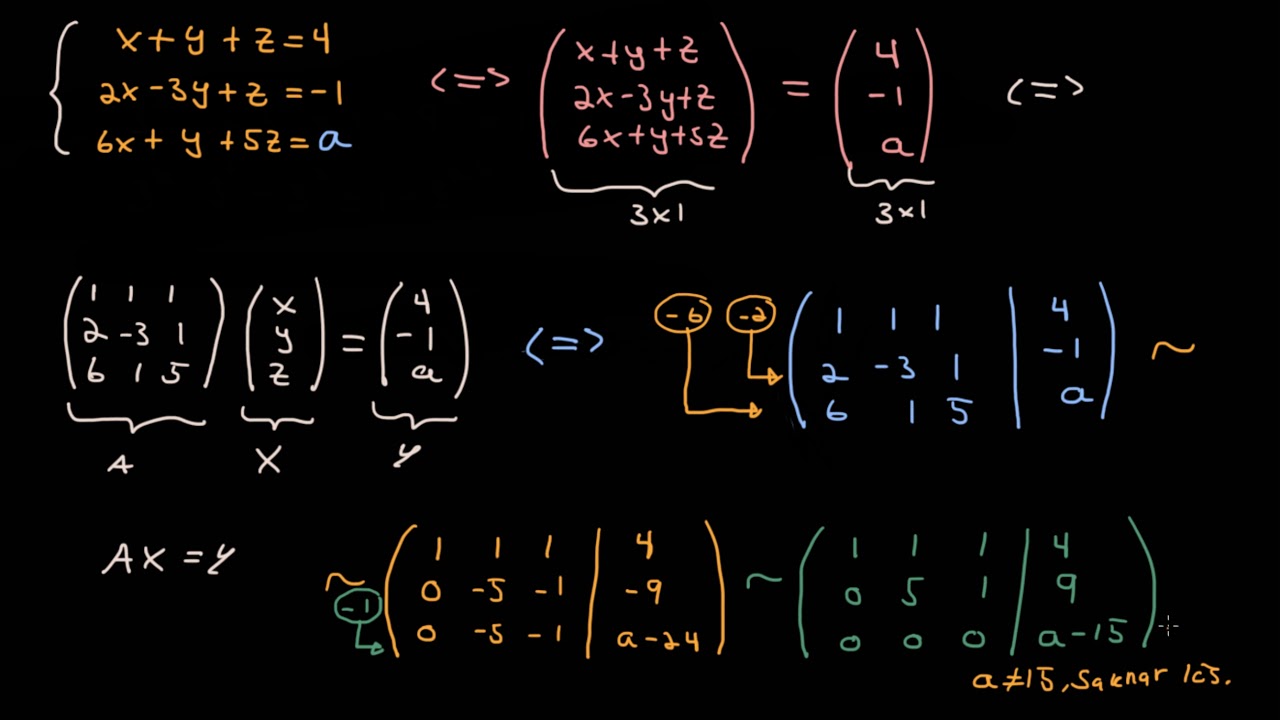 x+y+z=4
2x-3y+z=-1
6x+y+5z=a
<=>
x+y+z
2x-3y+z
6x+y+5z
=
4
-1
a
<=>
3x1
3x1
1 1 1
2 -3 1
6 1 5
x
y
z
=
4
-1
a
<=>
-6 -2
1 1 1 | 4
2 -3 1 | -1
6 1 5 | a
~
A
X
Y
AX=Y
~
-1
1 1 1 | 4
0 -5 -1 | -9
0 -5 -1 | a-24
~
1 1 1 | 4
0 5 1 | 9
0 0 0 | a-15
a≠15, Saknar lös.